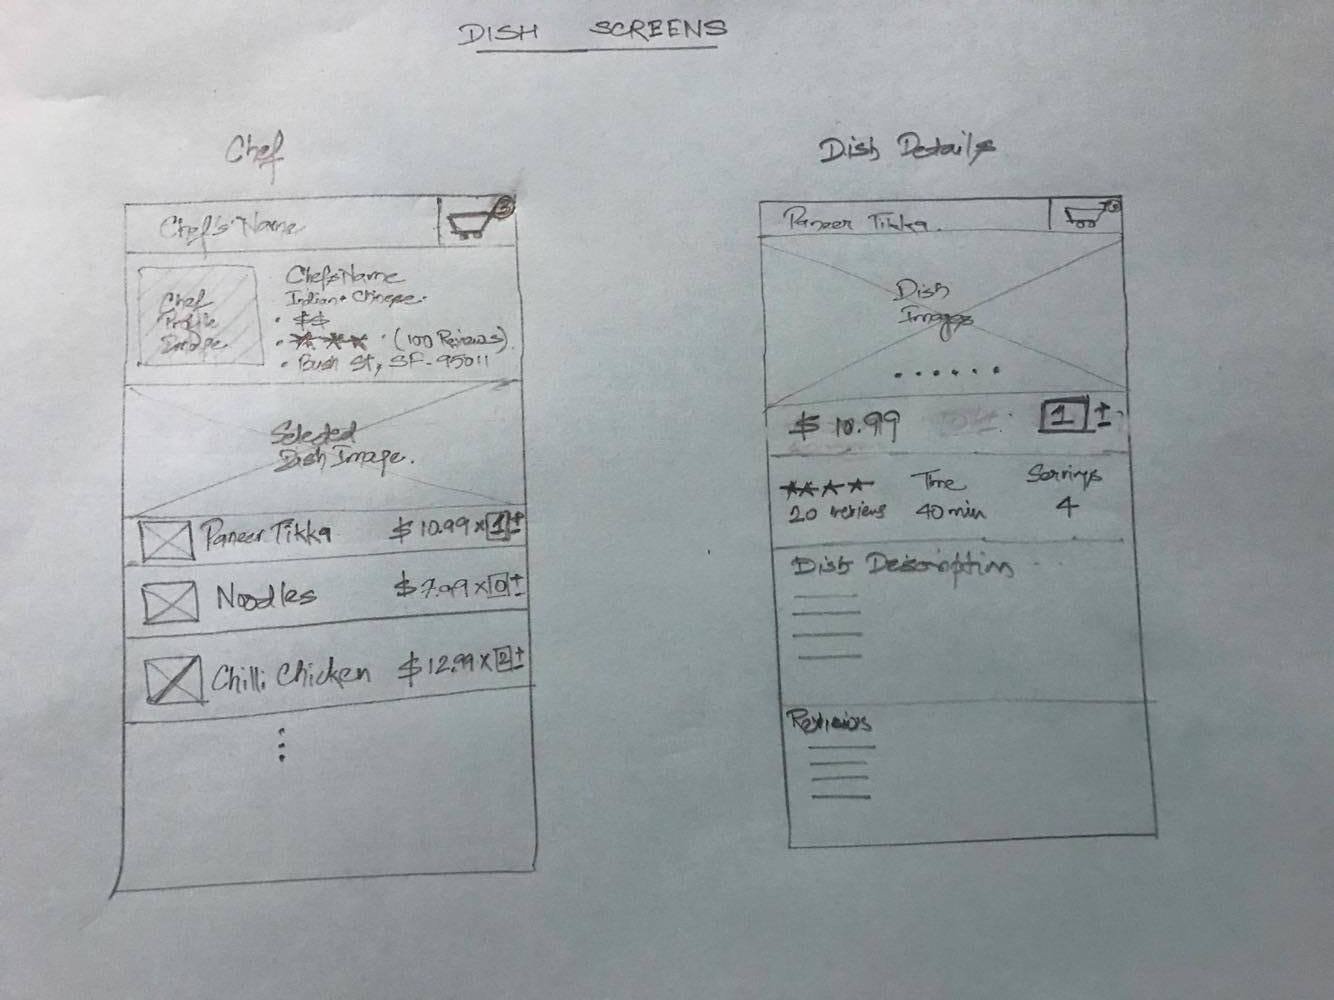 DISH SCREENS
Chef
Chef's Name
3
Chef
Profile
Image
Chef's Name
Indian + Chinese.
$$
(100 Reviews).
Bush St, SF - 95011
Selected
Dish Image.
Paneer Tikka $10.99 x 1 ±
Noodles $7.99 x 0 ±
Chilli Chicken $12.99 x 2 ±
Dish Details
Paneer Tikka.
3
Dish
Images
$ 10.99 1 ±
Time Servings
20 reviews 40 min 4
Dish Description
Reviews